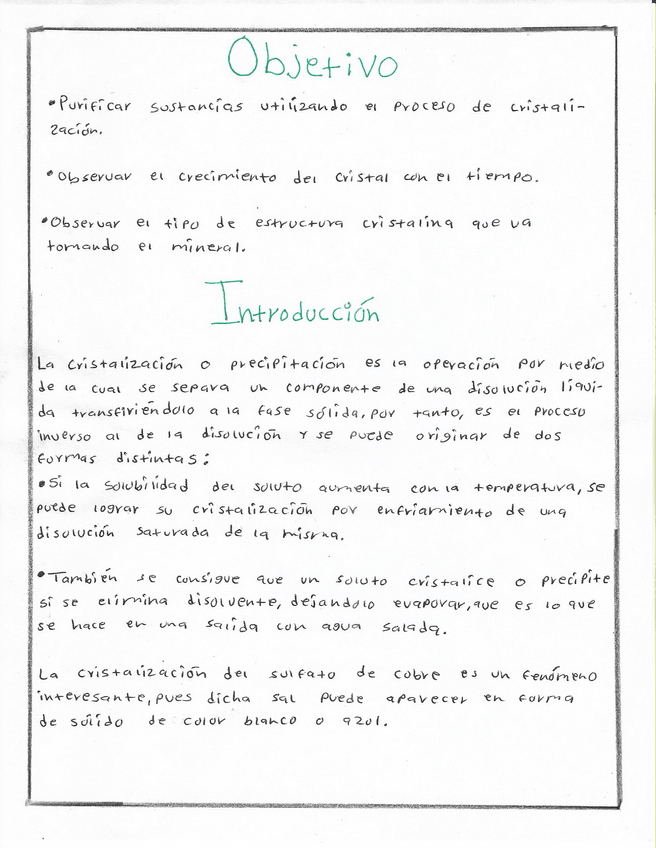 Objetivo
•Purificar sustancias utilizando el proceso de cristali-
zación.
•Observar el crecimiento del cristal con el tiempo.
•Observar el tipo de estructura cristalina que va
tomando el mineral.
Introducción
La cristalización o precipitación es la operación por medio
de la cual se separa un componente de una disolución líqui-
da transfiriéndolo a la fase sólida, por tanto, es el proceso
inverso al de la disolución y se puede originar de dos
formas distintas:
•Si la solubilidad del soluto aumenta con la temperatura, se
puede lograr su cristalización por enfriamiento de una
disolución saturada de la misma.
•También se consigue que un soluto cristalice o precipite
si se elimina disolvente, dejandolo evaporar, que es lo que
se hace en una salida con agua salada.
La cristalización del sulfato de cobre es un fenómeno
interesante, pues dicha sal puede aparecer en forma
de sólido de color blanco o azul.